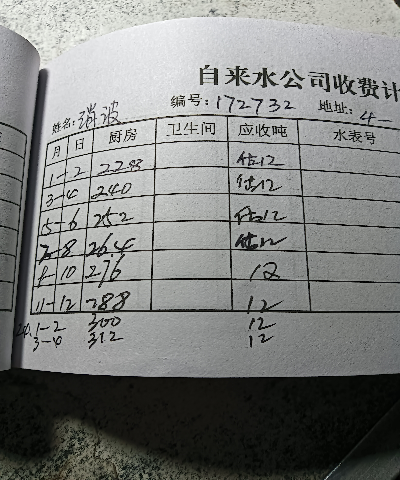 自来水公司收费计
姓名: 波 编号: 172732 地址: 4-
月 日 厨房 卫生间 应收吨 水表号
1-2 228 估12
3-4 240 估12
5-6 252 估12
7-8 264 估12
9-10 276 12
11-12 288 12
1-2 300 12
3-4 312 12